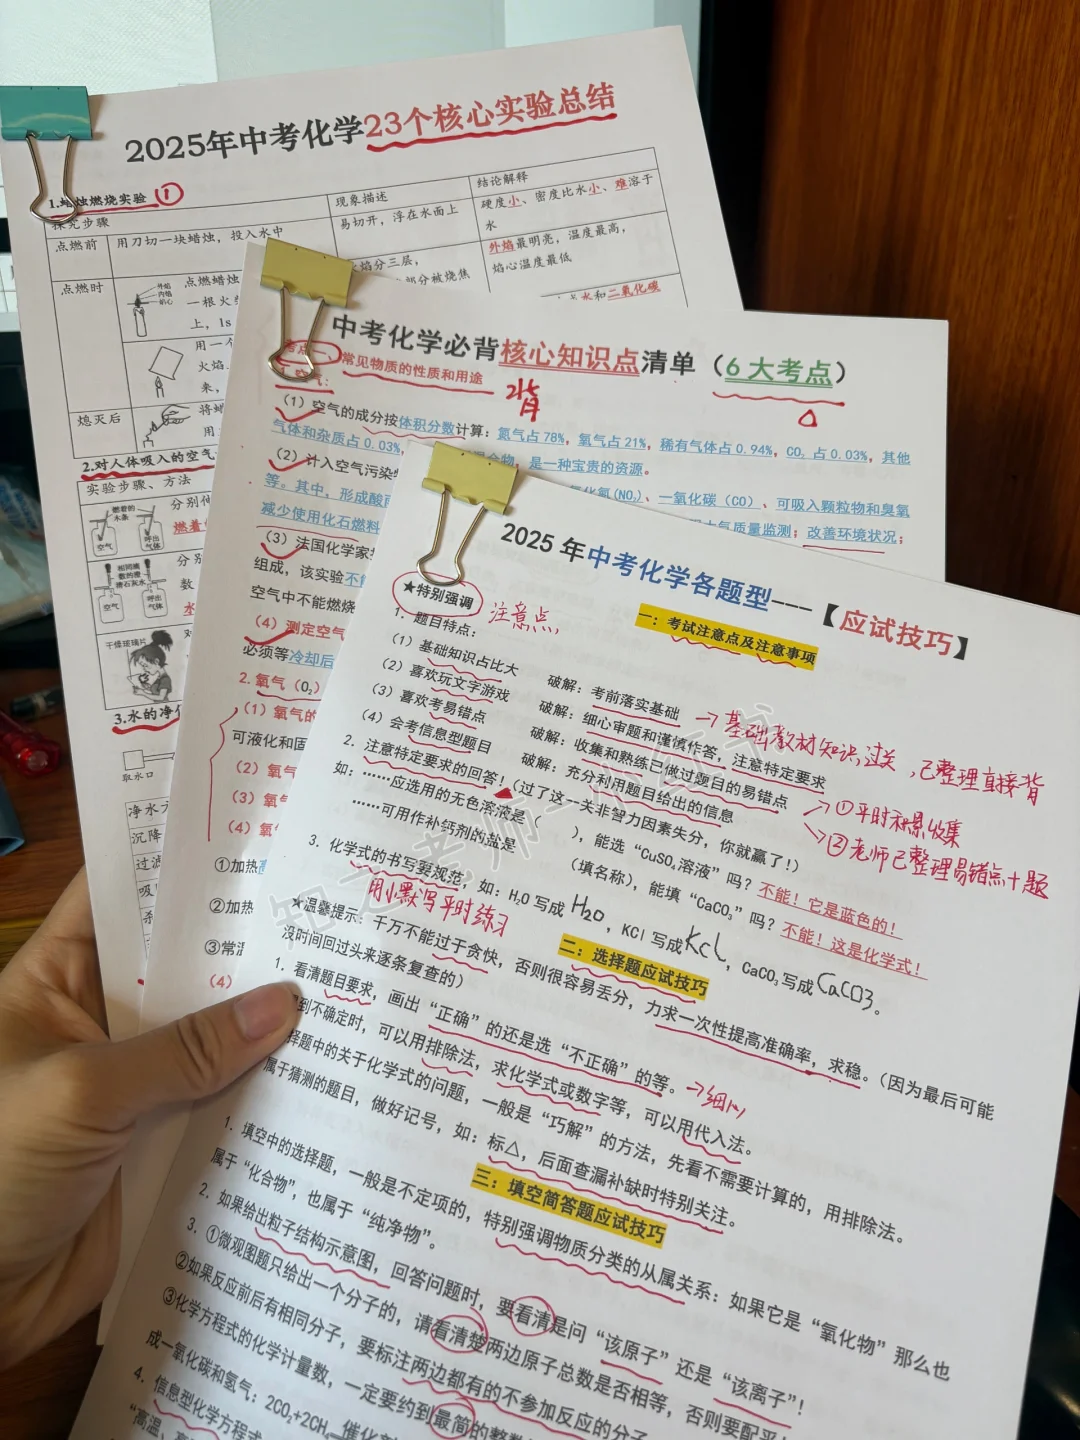 2025年中考化学23个核心实验总结
1.蜡烛燃烧实验 ①
探究步骤
现象描述
结论解释
点燃前
用刀切一块蜡烛，投入水中
易切开，浮在水面上
硬度小、密度比水小、难溶于
水
点燃时
外焰
内焰
焰心
点燃蜡烛
一根火
上，1s
焰分三层，
部分被烧焦
外焰最明亮，温度最高，
焰心温度最低
水和二氧化碳
用一个
火焰
来，
熄灭后
将蜡
用
2.对人体吸入的空气
实验步骤、方法
燃着的
木条
空气
呼出
气体
分别伸
燃着
相同滴
数的澄
清石灰水
空气
呼出
气体
分别
数
水
干燥玻璃片
对
3.水的净化
取水口
净水方
沉降
过滤
吸
杀
中考化学必背核心知识点清单（6大考点）
常见物质的性质和用途
背
1.空气：
（1）空气的成分按体积分数计算：氮气占78%，氧气占21%，稀有气体占0.94%，CO₂ 占0.03%，其他
气体和杂质占0.03%，
混合物，是一种宝贵的资源。
（2）计入空气污染
氧化氮(NO₂)、一氧化碳（CO）、可吸入颗粒物和臭氧
等。其中，形成酸雨
减少使用化石燃料
大气质量监测；改善环境状况；
（3）法国化学家
组成，该实验不能
空气中不能燃烧
（4）测定空气
必须等冷却后
2.氧气（O₂）
（1）氧气的
可液化和固
（2）氧气
（3）氧气
（4）氧
①加热
②加热
③常温
（4）
2025 年中考化学各题型---【应试技巧】
★特别强调
注意点，
一：考试注意点及注意事项
1. 题目特点：
（1）基础知识占比大
破解：考前落实基础
→基础教材知识过关，已整理直接背
（2）喜欢玩文字游戏
破解：细心审题和谨慎作答，注意特定要求
（3）喜欢考易错点
破解：收集和熟练已做过题目的易错点
→①平时积累收集
→②老师已整理易错点+题
（4）会考信息型题目
破解：充分利用题目给出的信息
2. 注意特定要求的回答！（过了这一关非智力因素失分，你就赢了！）
如：……应选用的无色溶液是（      ），能选“CuSO₄溶液”吗？不能！它是蓝色的！
……可用作补钙剂的盐是      （填名称），能填“CaCO₃”吗？不能！这是化学式！
3. 化学式的书写要规范，如：H₂O 写成 H₂o ，KCl 写成 Kcl ，CaCO₃写成 CaCO3。
用小黑写平时练习
★温馨提示：千万不能过于贪快，否则很容易丢分，力求一次性提高准确率，求稳。（因为最后可能
没时间回过头来逐条复查的）
二：选择题应试技巧
1. 看清题目要求，画出“正确”的还是选“不正确”的等。→细心
到不确定时，可以用排除法，求化学式或数字等，可以用代入法。
择题中的关于化学式的问题，一般是“巧解”的方法，先看不需要计算的，用排除法。
属于猜测的题目，做好记号，如：标△，后面查漏补缺时特别关注。
三：填空简答题应试技巧
1. 填空中的选择题，一般是不定项的，特别强调物质分类的从属关系：如果它是“氧化物”那么也
属于“化合物”，也属于“纯净物”。
2. 如果给出粒子结构示意图，回答问题时，要看清是问“该原子”还是“该离子”！
3. ①微观图题只给出一个分子的，请看清楚两边原子总数是否相等，否则要配平！
②如果反应前后有相同分子，要标注两边都有的不参加反应的分子
③化学方程式的化学计量数，一定要约到最简的整数
4. 信息型化学方程式
成一氧化碳和氢气：2CO₂+2CH₄ 催化剂
“高温、高
知之老师-小红书